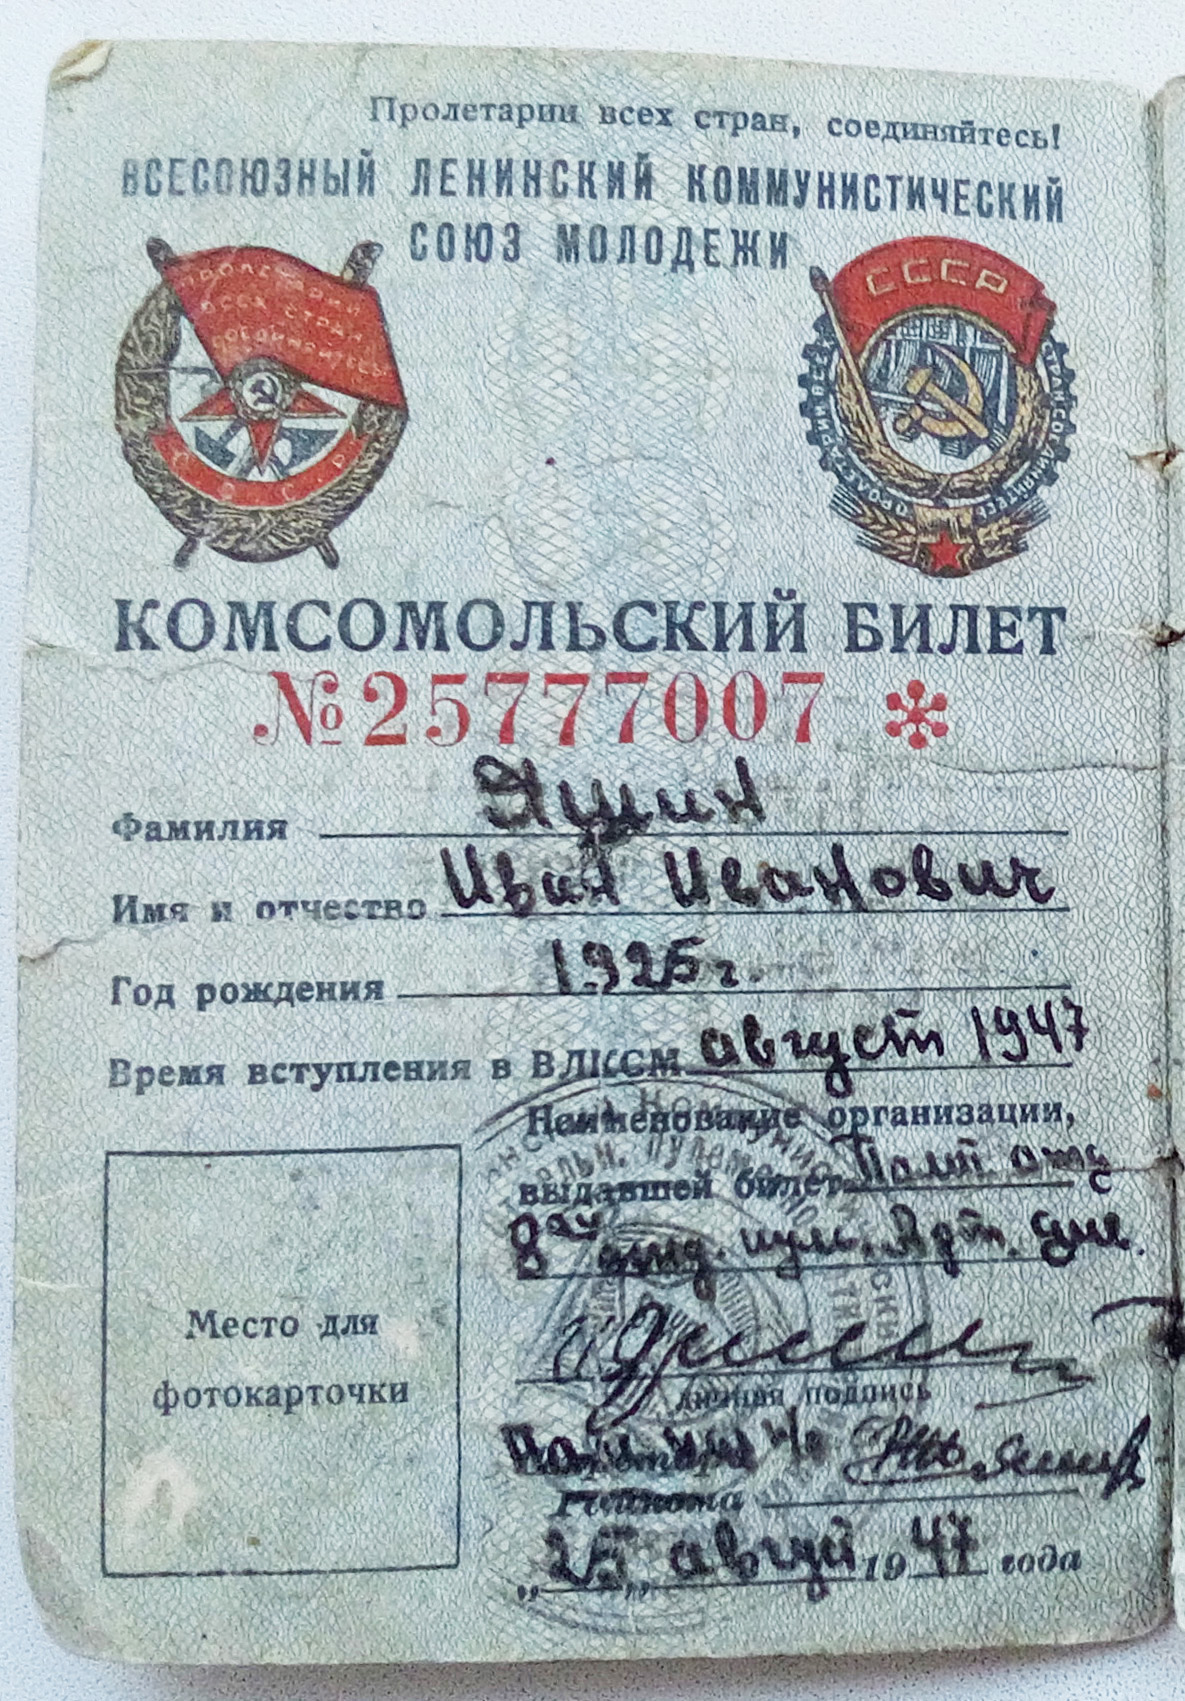 Пролетарии всех стран, соединяйтесь!
ВСЕСОЮЗНЫЙ ЛЕНИНСКИЙ КОММУНИСТИЧЕСКИЙ
СОЮЗ МОЛОДЕЖИ
ПРОЛЕТАРИИ
ВСЕХ СТРАН
СОЕДИНЯЙТЕСЬ
СССР
СССР
КОМСОМОЛЬСКИЙ БИЛЕТ
№25777007
Фамилия Яшин
Имя и отчество Иван Иванович
Год рождения 1925 г.
Время вступления в ВЛКСМ август 1947
Наименование организации,
выдавшей билет Полит. отд
8ой отд. пул. Арт. див.
личная подпись
Место для
фотокарточки
Райкома
„25„ август 1947 года